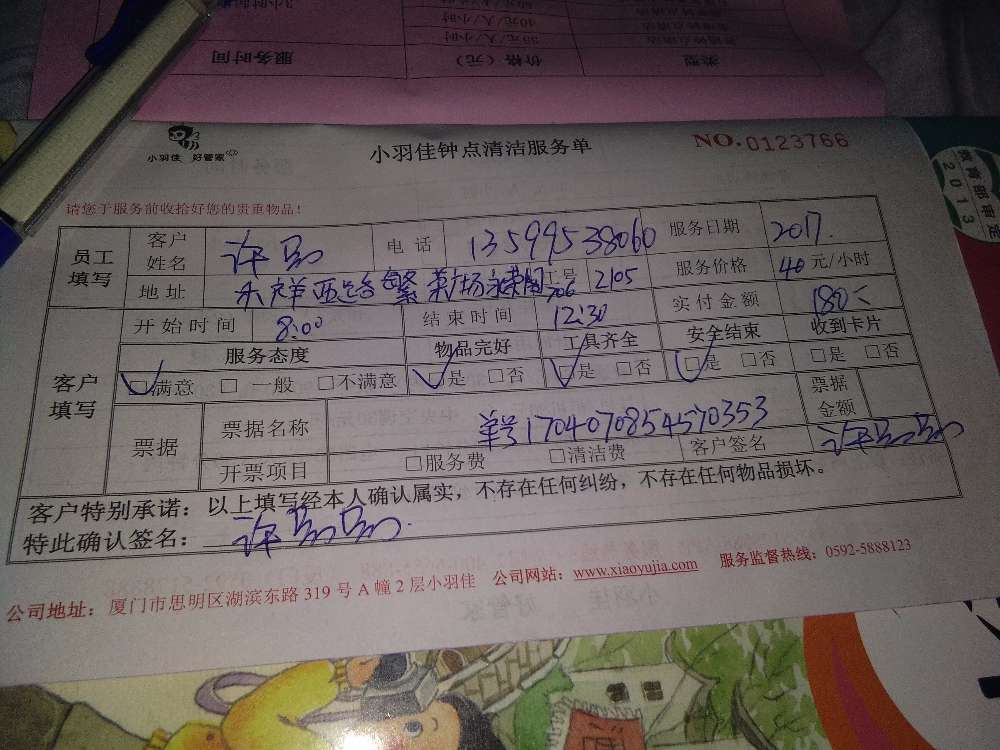 类型 价格（元） 服务时间
小羽佳 好管家
小羽佳钟点清洁服务单
NO.0123766
请您于服务前收拾好您的贵重物品！
员工填写 客户姓名 许 电话 13599538060 服务日期 2017.
地址 禾祥西路 2105 服务价格 40元/小时
客户填写 开始时间 8:00 结束时间 12:30 实付金额 180
服务态度 物品完好 工具齐全 安全结束 收到卡片
□满意 □一般 □不满意 □是 □否 □是 □否 □是 □否 □是 □否
票据 票据名称 单号1704070854570353 票据金额
开票项目 □服务费 □清洁费 客户签名 许
客户特别承诺：以上填写经本人确认属实，不存在任何纠纷，不存在任何物品损坏。
特此确认签名： 许
公司地址：厦门市思明区湖滨东路 319 号 A 幢 2 层小羽佳 公司网站：www.xiaoyujia.com 服务监督热线：0592-5888123
教育部审定
2013